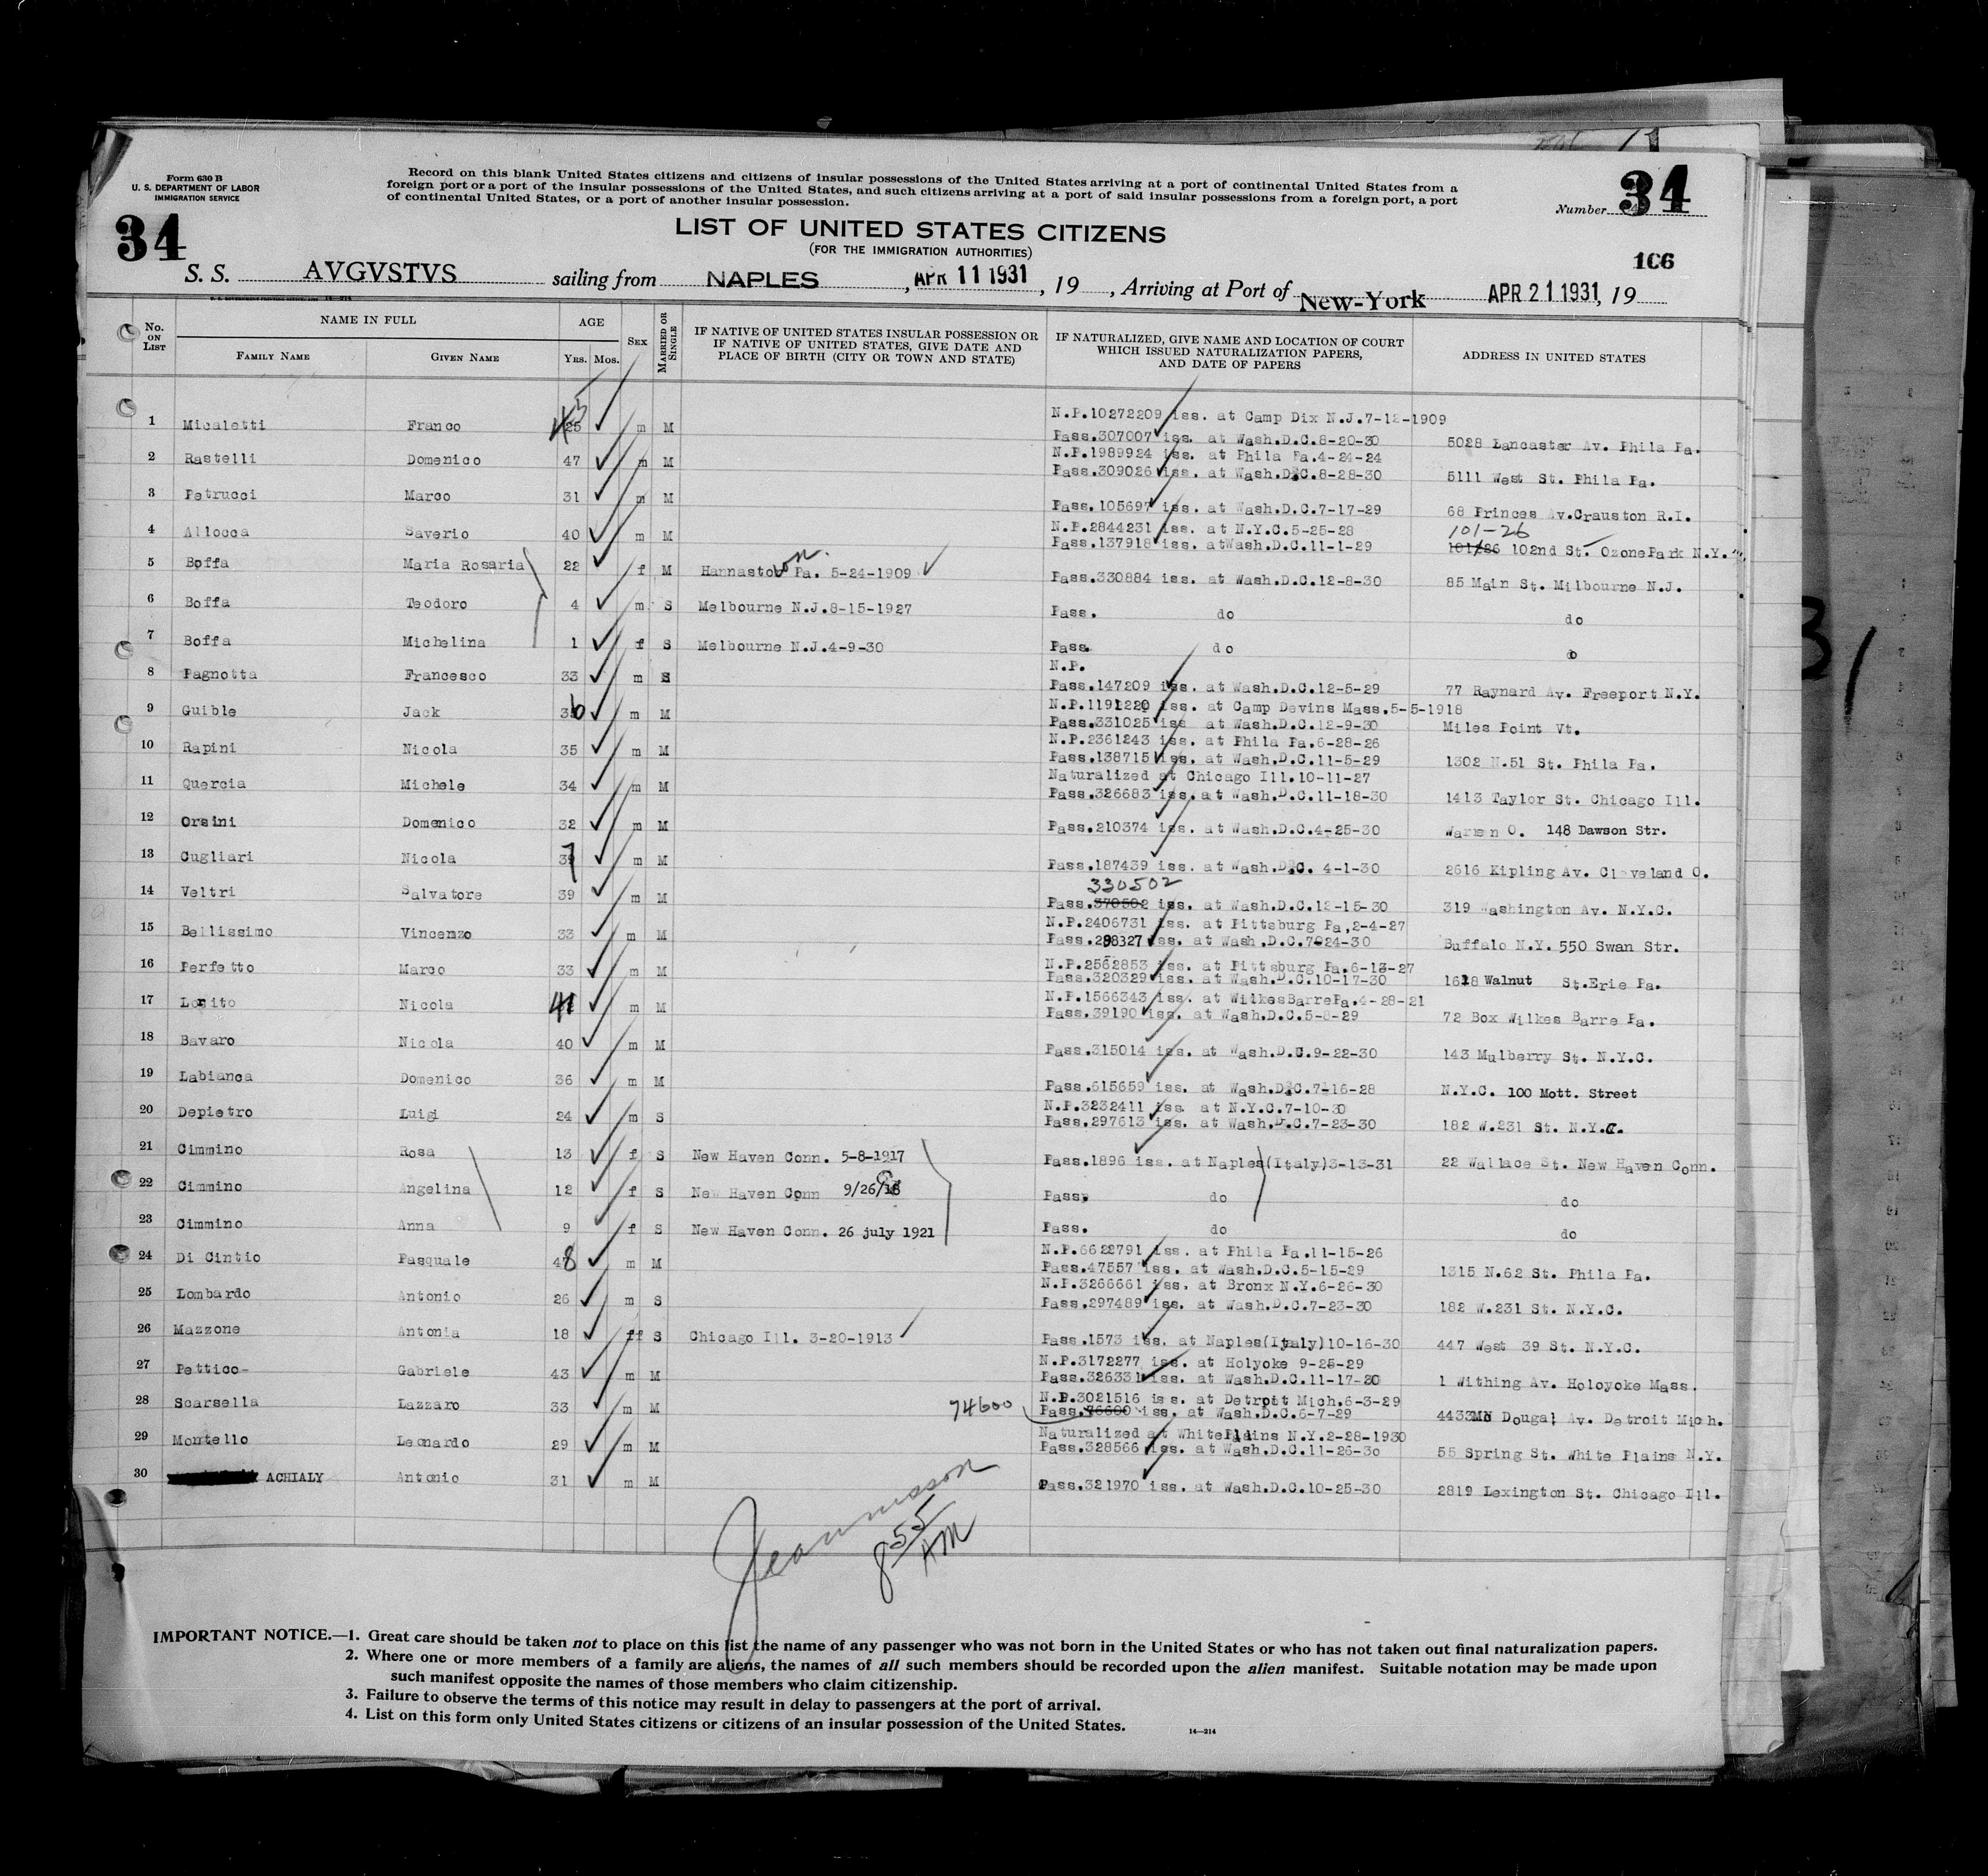 Form 630 B
U. S. DEPARTMENT OF LABOR
IMMIGRATION SERVICE
Record on this blank United States citizens and citizens of insular possessions of the United States arriving at a port of continental United States from a
foreign port or a port of the insular possessions of the United States, and such citizens arriving at a port of said insular possessions from a foreign port, a port
of continental United States, or a port of another insular possession.
34
Number 34
LIST OF UNITED STATES CITIZENS
(FOR THE IMMIGRATION AUTHORITIES)
106
S. S. AVGVSTVS sailing from NAPLES, APR 11 1931, 19 , Arriving at Port of New-York APR 21 1931, 19
No. ON LIST
NAME IN FULL
FAMILY NAME
GIVEN NAME
AGE
YRS.
MOS.
SEX
MARRIED OR SINGLE
IF NATIVE OF UNITED STATES INSULAR POSSESSION OR
IF NATIVE OF UNITED STATES, GIVE DATE AND
PLACE OF BIRTH (CITY OR TOWN AND STATE)
IF NATURALIZED, GIVE NAME AND LOCATION OF COURT
WHICH ISSUED NATURALIZATION PAPERS,
AND DATE OF PAPERS
ADDRESS IN UNITED STATES
N.P.10272209 iss. at Camp Dix N.J.7-12-1909
1 Micaletti Franco m M Pass.307007 iss. at Wash.D.C.8-20-30 5028 Lancaster Av. Phila Pa.
N.P.1989924 iss. at Phila Pa.4-24-24
2 Rastelli Domenico 47 m M Pass.309026 iss. at Wash.D.C.8-28-30 5111 West St. Phila Pa.
3 Petrucci Marco 31 m M Pass.105697 iss. at Wash.D.C.7-17-29 68 Princes Av.Crauston R.I.
N.P.2844231 iss. at N.Y.C.5-25-28 101-26
4 Allocca Saverio 40 m M Pass.137918 iss. atWash.D.C.11-1-29 101/26 102nd St. OzonePark N.Y.
5 Boffa Maria Rosaria 22 f M Hannastown Pa. 5-24-1909 Pass.330884 iss. at Wash.D.C.12-8-30 85 Main St. Milbourne N.J.
6 Boffa Teodoro 4 m S Melbourne N.J.8-15-1927 Pass. do do
7 Boffa Michelina 1 f S Melbourne N.J.4-9-30 Pass. do do
N.P.
8 Pagnotta Francesco 33 m S Pass.147209 iss. at Wash.D.C.12-5-29 77 Raynard Av. Freeport N.Y.
N.P.1191220 iss. at Camp Devins Mass.5-5-1918
9 Guible Jack 36 m M Pass.331025 iss at Wash.D.C.12-9-30 Miles Point Vt.
N.P.2361243 iss. at Phila Pa.6-28-26
10 Rapini Nicola 35 m M Pass.138715 iss. at Wash.D.C.11-5-29 1302 N.51 St. Phila Pa.
Naturalized at Chicago Ill.10-11-27
11 Quercia Michele 34 m M Pass.326683 iss.at Wash.D.C.11-18-30 1413 Taylor St. Chicago Ill.
12 Orsini Domenico 32 m M Pass.210374 iss. at Wash.D.C.4-25-30 Warren O. 148 Dawson Str.
13 Cugliari Nicola 37 m M Pass.187439 iss. at Wash.D.C. 4-1-30 2616 Kipling Av. Cleveland O.
330502
14 Veltri Salvatore 39 m M Pass.370502 iss. at Wash.D.C.12-15-30 319 Washington Av. N.Y.C.
N.P.2406731 iss. at Pittsburg Pa,2-4-27
15 Bellissimo Vincenzo 33 m M Pass.298327 iss. at Wash.D.C.7-24-30 Buffalo N.Y. 550 Swan Str.
N.P.2562853 iss. at Pittsburg Pa.6-13-27
16 Perfetto Marco 33 m M Pass.320329 iss. at Wash.D.C.10-17-30 1618 Walnut St.Erie Pa.
N.P.1566343 iss. at WilkesBarrePa.4-28-21
17 Lorito Nicola 41 m M Pass.39190 iss. at Wash.D.C.5-8-29 72 Box Wilkes Barre Pa.
18 Bavaro Nicola 40 m M Pass.315014 iss. at Wash.D.C.9-22-30 143 Mulberry St. N.Y.C.
19 Labianca Domenico 36 m M Pass.615659 iss. at Wash.D.C.7-16-28 N.Y.C. 100 Mott. Street
N.P.3232411 iss. at N.Y.C.7-10-30
20 Depietro Luigi 24 m S Pass.297613 iss. at Wash.D.C.7-23-30 182 W.231 St. N.Y.C.
21 Cimmino Rosa 13 f S New Haven Conn. 5-8-1917 Pass.1896 iss. at Naples(Italy)3-13-31 22 Wallace St. New Haven Conn.
22 Cimmino Angelina 12 f S New Haven Conn 9/26/18 Pass. do do
23 Cimmino Anna 9 f S New Haven Conn. 26 july 1921 Pass. do do
N.P.6628791 iss. at Phila Pa.11-15-26
24 Di Cintio Pasquale 48 m M Pass.47557 iss. at Wash.D.C.5-15-29 1315 N.62 St. Phila Pa.
N.P.3266661 iss. at Bronx N.Y.6-26-30
25 Lombardo Antonio 26 m S Pass.297489 iss. at Wash.D.C.7-23-30 182 W.231 St. N.Y.C.
26 Mazzone Antonia 18 f S Chicago Ill. 3-20-1913 Pass.1573 iss. at Naples(Italy)10-16-30 447 West 39 St. N.Y.C.
N.P.3172277 iss. at Holyoke 9-25-29
27 Pettico- Gabriele 43 m M Pass.326331 iss. at Wash.D.C.11-17-20 1 Withing Av. Holoyoke Mass.
N.P.3021516 iss. at Detroit Mich.6-3-29
28 Scarsella Lazzaro 33 m M 74600 Pass.76600 iss. at Wash.D.C.6-7-29 4433 Mc Dougal Av. Detroit Mich.
Naturalized at WhitePlains N.Y.2-28-1930
29 Montello Leonardo 29 m M Pass.328566 iss. at Wash.D.C.11-26-30 55 Spring St. White Plains N.Y.
30 ACHIALY Antonio 31 m M Pass.321970 iss. at Wash.D.C.10-25-30 2819 Lexington St. Chicago Ill.
8 55 AM
IMPORTANT NOTICE.—1. Great care should be taken not to place on this list the name of any passenger who was not born in the United States or who has not taken out final naturalization papers.
2. Where one or more members of a family are aliens, the names of all such members should be recorded upon the alien manifest. Suitable notation may be made upon
such manifest opposite the names of those members who claim citizenship.
3. Failure to observe the terms of this notice may result in delay to passengers at the port of arrival.
4. List on this form only United States citizens or citizens of an insular possession of the United States.
14—214